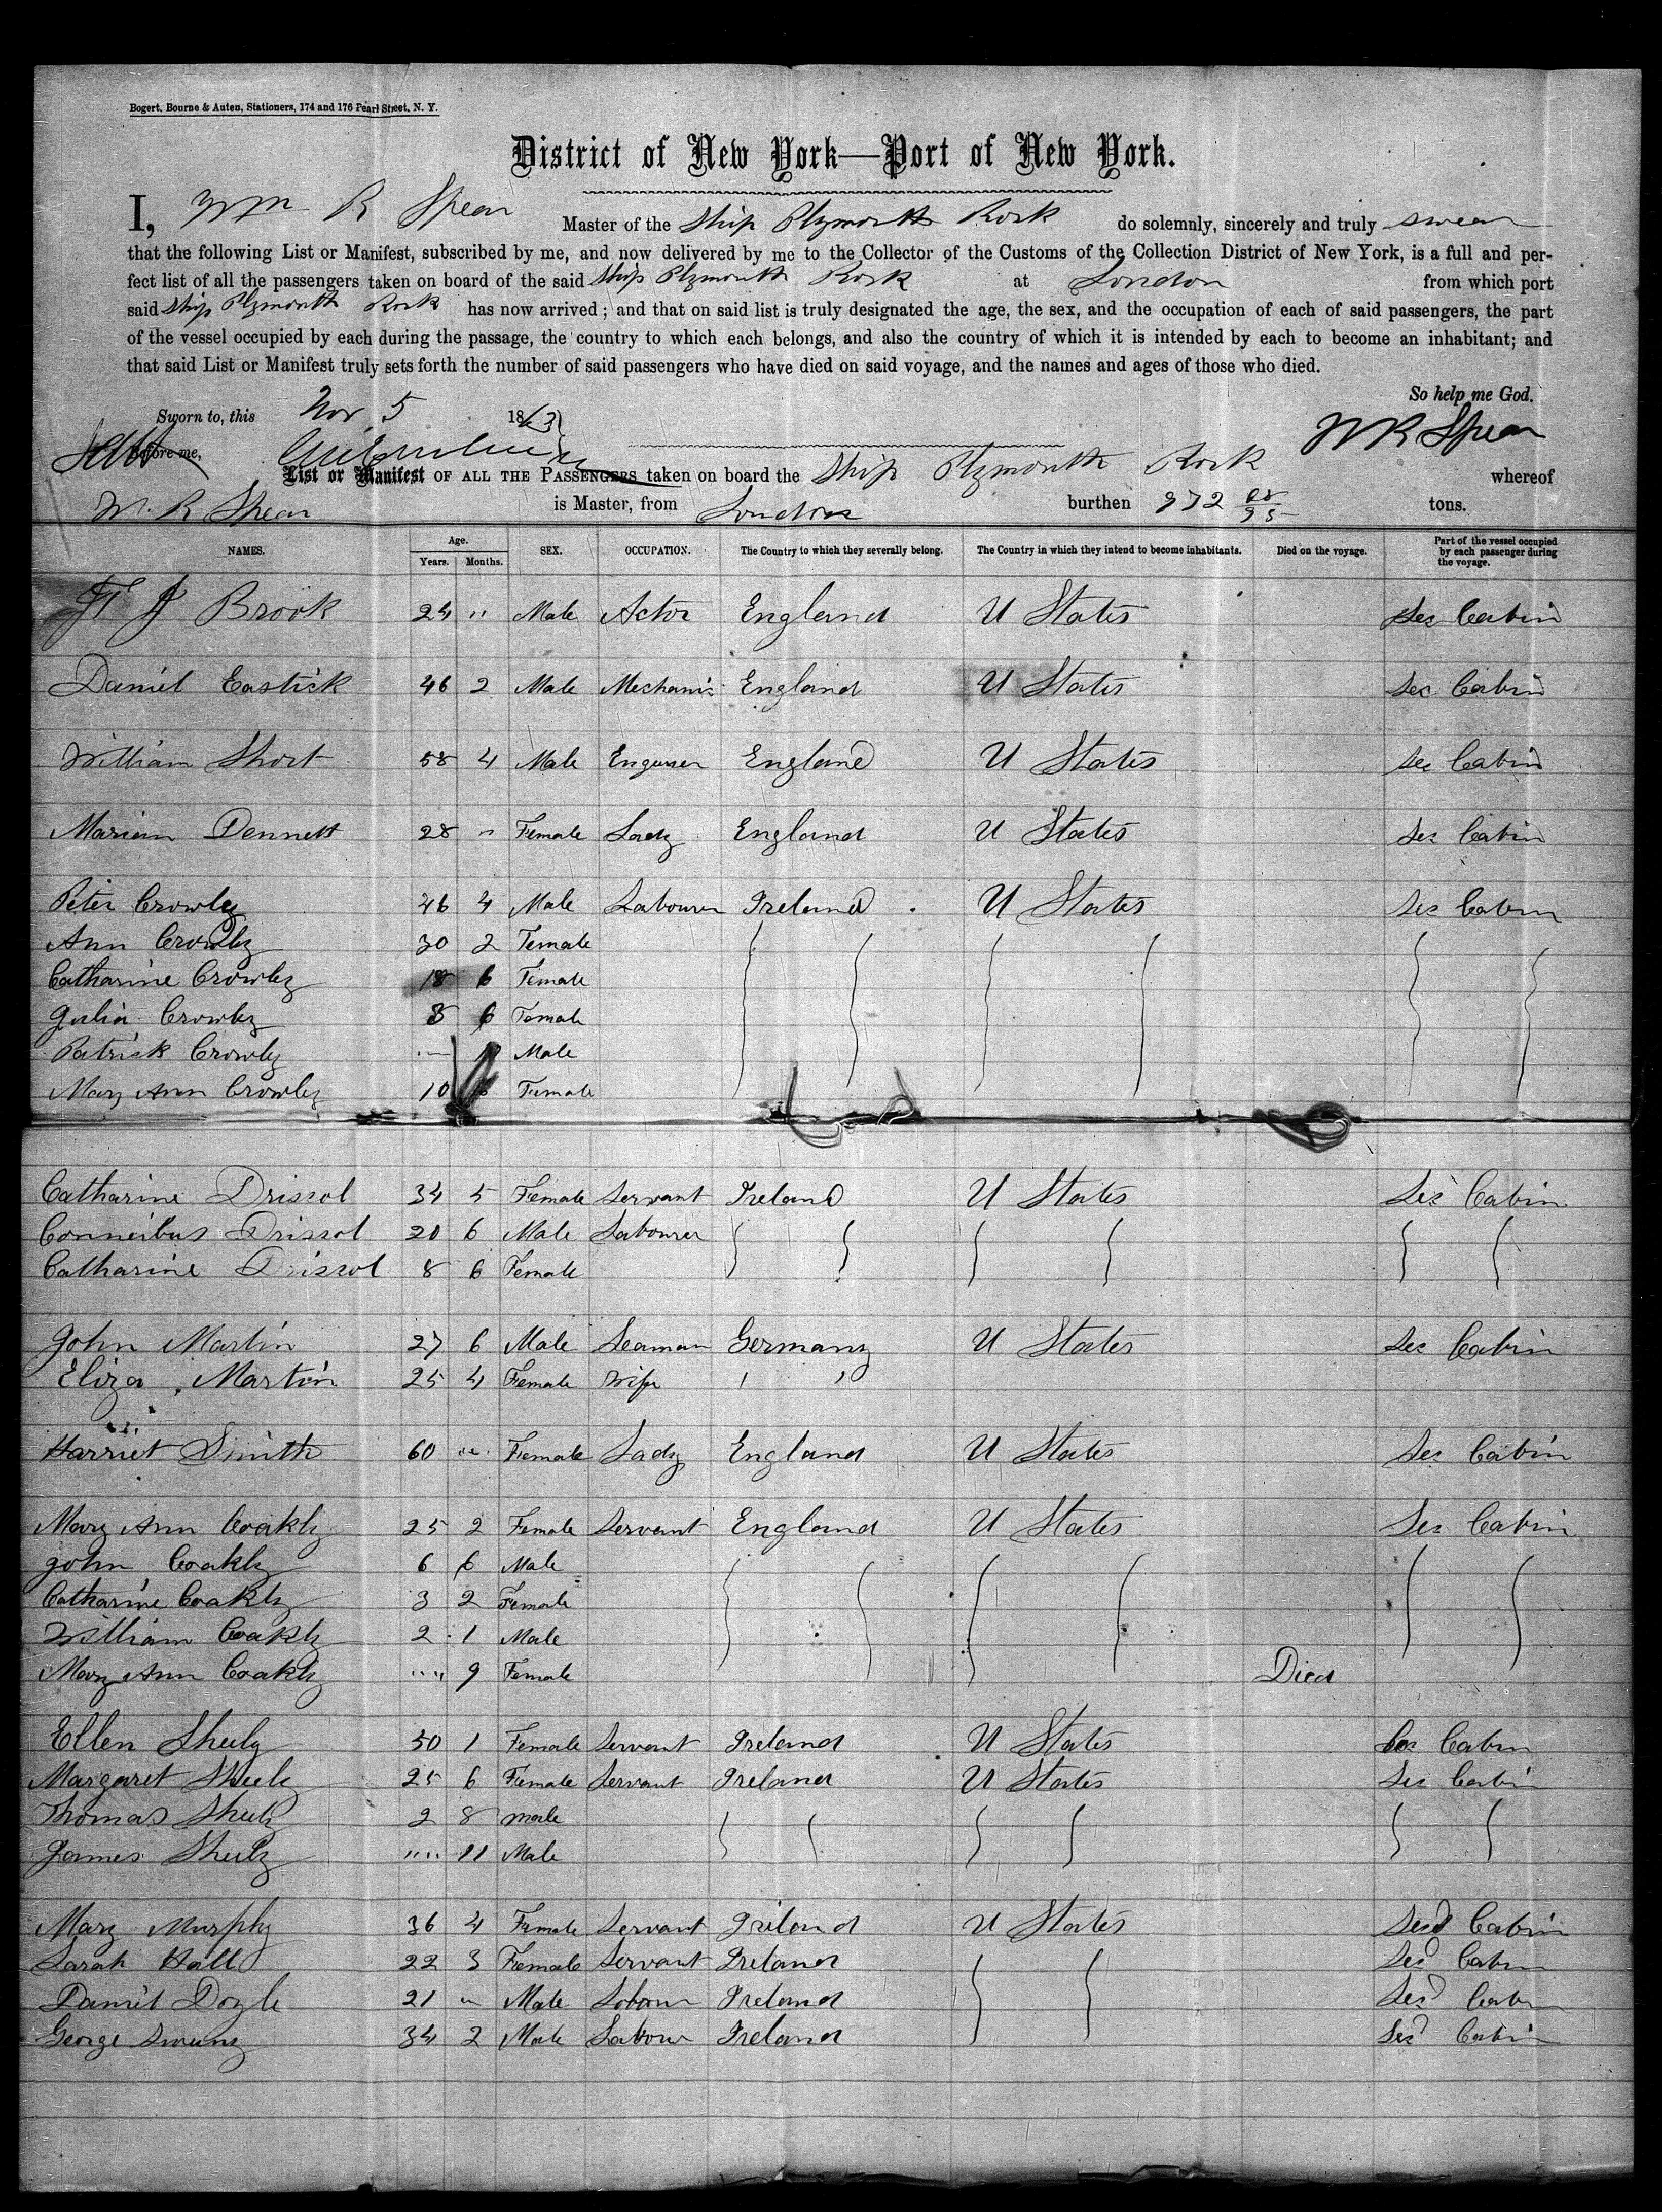 Bogert, Bourne & Auten, Stationers, 174 and 176 Pearl Street, N. Y.
District of New York—Port of New York.
I, Wm R Spear Master of the Ship Plymouth Rock do solemnly, sincerely and truly swear
that the following List or Manifest, subscribed by me, and now delivered by me to the Collector of the Customs of the Collection District of New York, is a full and per-
fect list of all the passengers taken on board of the said Ship Plymouth Rock at London from which port
said Ship Plymouth Rock has now arrived; and that on said list is truly designated the age, the sex, and the occupation of each of said passengers, the part
of the vessel occupied by each during the passage, the country to which each belongs, and also the country of which it is intended by each to become an inhabitant; and
that said List or Manifest truly sets forth the number of said passengers who have died on said voyage, and the names and ages of those who died.
So help me God.
Sworn to, this Nov 5 1863
W R Spear
Before me,
List or Manifest OF ALL THE PASSENGERS taken on board the Ship Plymouth Rock whereof
W. R Spear is Master, from London burthen 972 tons.
NAMES. Age. Years. Months. SEX. OCCUPATION. The Country to which they severally belong. The Country in which they intend to become inhabitants. Died on the voyage. Part of the vessel occupied by each passenger during the voyage.
J Brook 24 " Male Actor England U States Sec Cabin
Daniel Eastick 46 2 Male Mechanic England U States Sec Cabin
William Short 58 4 Male Engineer England U States Sec Cabin
Mariam Dennett 28 " Female Lady England U States Sec Cabin
Peter Crowley 46 4 Male Labourer Ireland U States Sec Cabin
Ann Crowley 30 2 Female
Catharine Crowley 18 6 Female
Julia Crowley 8 6 Female
Patrick Crowley Male
Mary Ann Crowley 10 Female
Catharine Driscol 34 5 Female Servant Ireland U States Sec Cabin
Driscol 20 6 Male Labourer
Catharine Driscol 8 6 Female
John Martin 27 6 Male Seaman Germany U States Sec Cabin
Eliza Martin 25 4 Female Wife " "
Harriet Smith 60 " Female Lady England U States Sec Cabin
Mary Ann Coakly 25 2 Female Servant England U States Sec Cabin
John Coakly 6 6 Male
Catharine Coakly 3 2 Female
William Coakly 2 1 Male
Mary Ann Coakly " 9 Female Died
Ellen Sheely 50 1 Female Servant Ireland U States Sec Cabin
Margaret Sheely 25 6 Female Servant Ireland U States Sec Cabin
Thomas Sheely 2 8 male
James Sheely " 11 Male
Mary Murphy 36 4 Female Servant Ireland U States Secd Cabin
Sarah Hall 22 3 Female Servant Ireland Sec Cabin
Daniel Doyle 21 " Male Labour Ireland Sec Cabin
George 34 2 Male Labour Ireland Sec Cabin